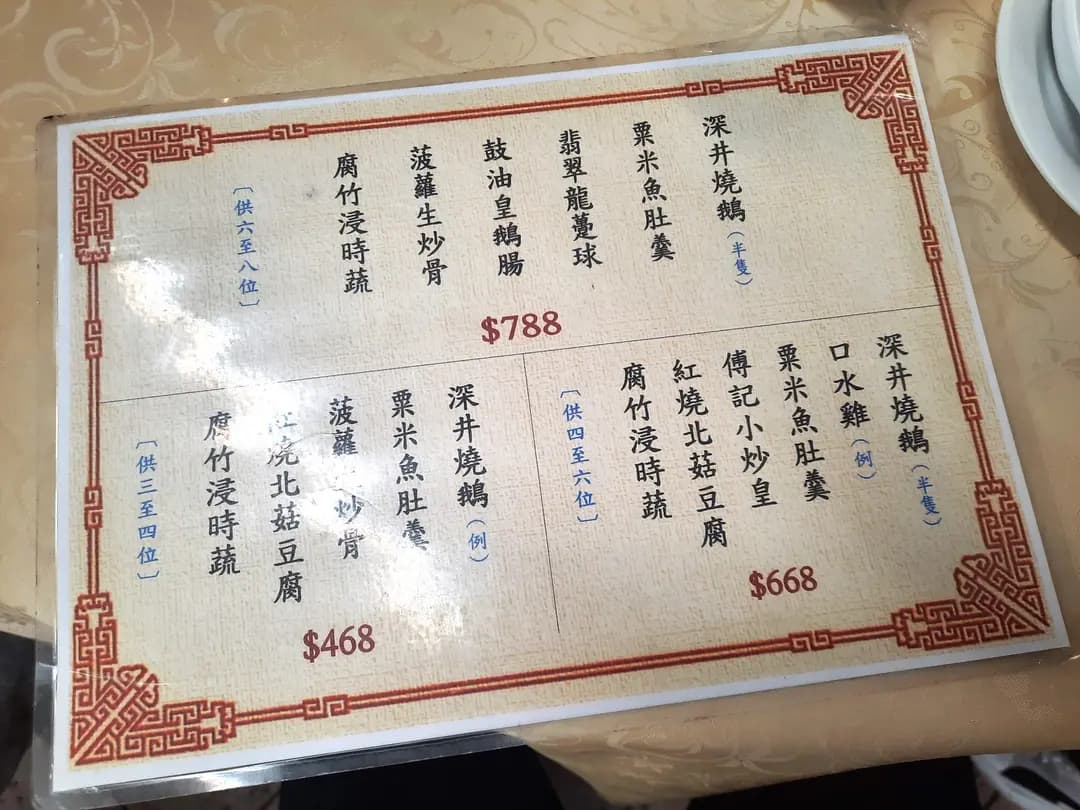 深井燒鵝(半隻)
粟米魚肚羹
翡翠龍躉球
鼓油皇鵝腸
菠蘿生炒骨
腐竹浸時蔬
〔供六至八位〕
$788
深井燒鵝(半隻)
口水雞(例)
粟米魚肚羹
傅記小炒皇
紅燒北菇豆腐
腐竹浸時蔬
〔供四至六位〕
$668
深井燒鵝(例)
粟米魚肚羹
菠蘿炒骨
紅燒北菇豆腐
腐竹浸時蔬
〔供三至四位〕
$468